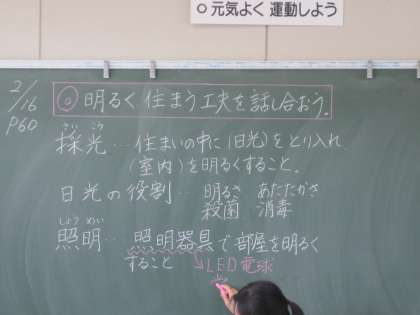 ○元気よく 運動しよう
2/16
P60
◎ 明るく住まう工夫を話し合おう。
さいこう
採光…住まいの中に(日光)をとり入れ
(室内)を明るくすること。
日光の役割… 明るさ あたたかさ
殺菌 消毒
しょうめい
照明…照明器具で部屋を明るく
すること
LED電球